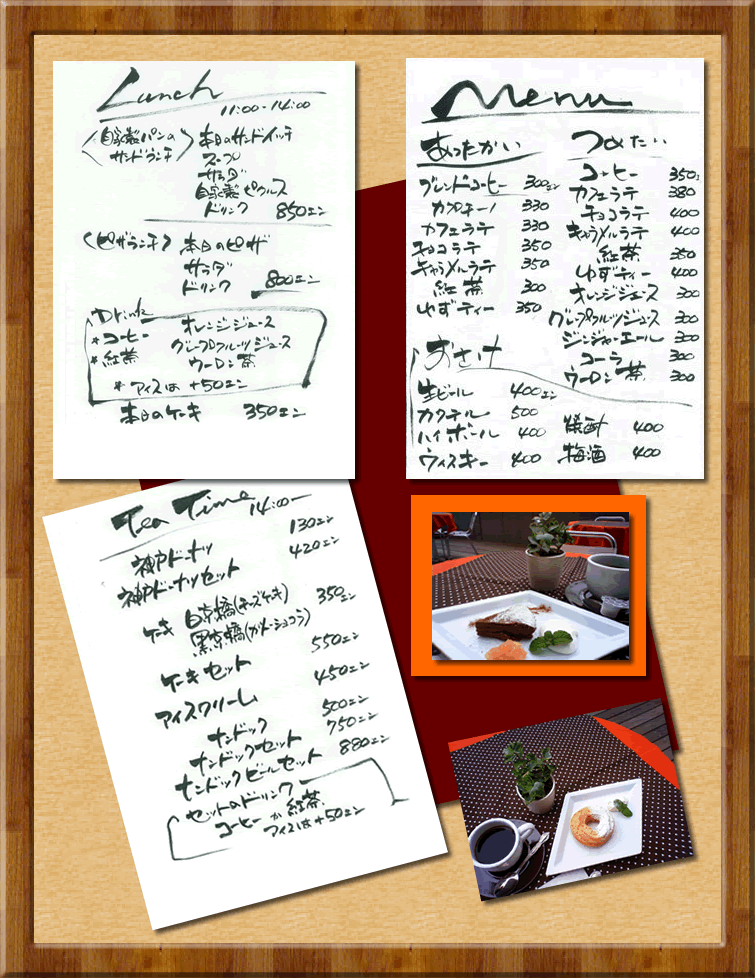 Lunch
11:00-14:00
〈自家製パンの
サンドランチ〉
本日のサンドイッチ
スープ
サラダ
自家製ピクルス
ドリンク 850エン
〈ピザランチ〉 本日のピザ
サラダ
ドリンク 800エン
Drink
*コーヒー オレンジジュース
*紅茶 グレープフルーツジュース
ウーロン茶
*アイスは +50エン
本日のケーキ 350エン
Menu
あったかい
ブレンドコーヒー 300エン
カプチーノ 330
カフェラテ 330
チョコラテ 350
キャラメルラテ 350
紅茶 300
ゆずティー 350
つめたい
コーヒー 350エ
カフェラテ 380
チョコラテ 400
キャラメルラテ 400
紅茶 350
ゆずティー 400
オレンジジュース 300
グレープフルーツジュース 300
ジンジャーエール 300
コーラ 300
ウーロン茶 300
おさけ
生ビール 400エン
カクテル 500
ハイボール 400
ウィスキー 400
焼酎 400
梅酒 400
Tea Time 14:00—
神戸ドーナツ 130エン
神戸ドーナツセット 420エン
ケーキ 白京橋(チーズケーキ) 350エン
黒京橋(ガトーショコラ)
ケーキセット 550エン
アイスクリーム 450エン
ナンドック 500エン
ナンドックセット 750エン
ナンドックビールセット 880エン
セットのドリンク
コーヒー か 紅茶
アイスは +50エン